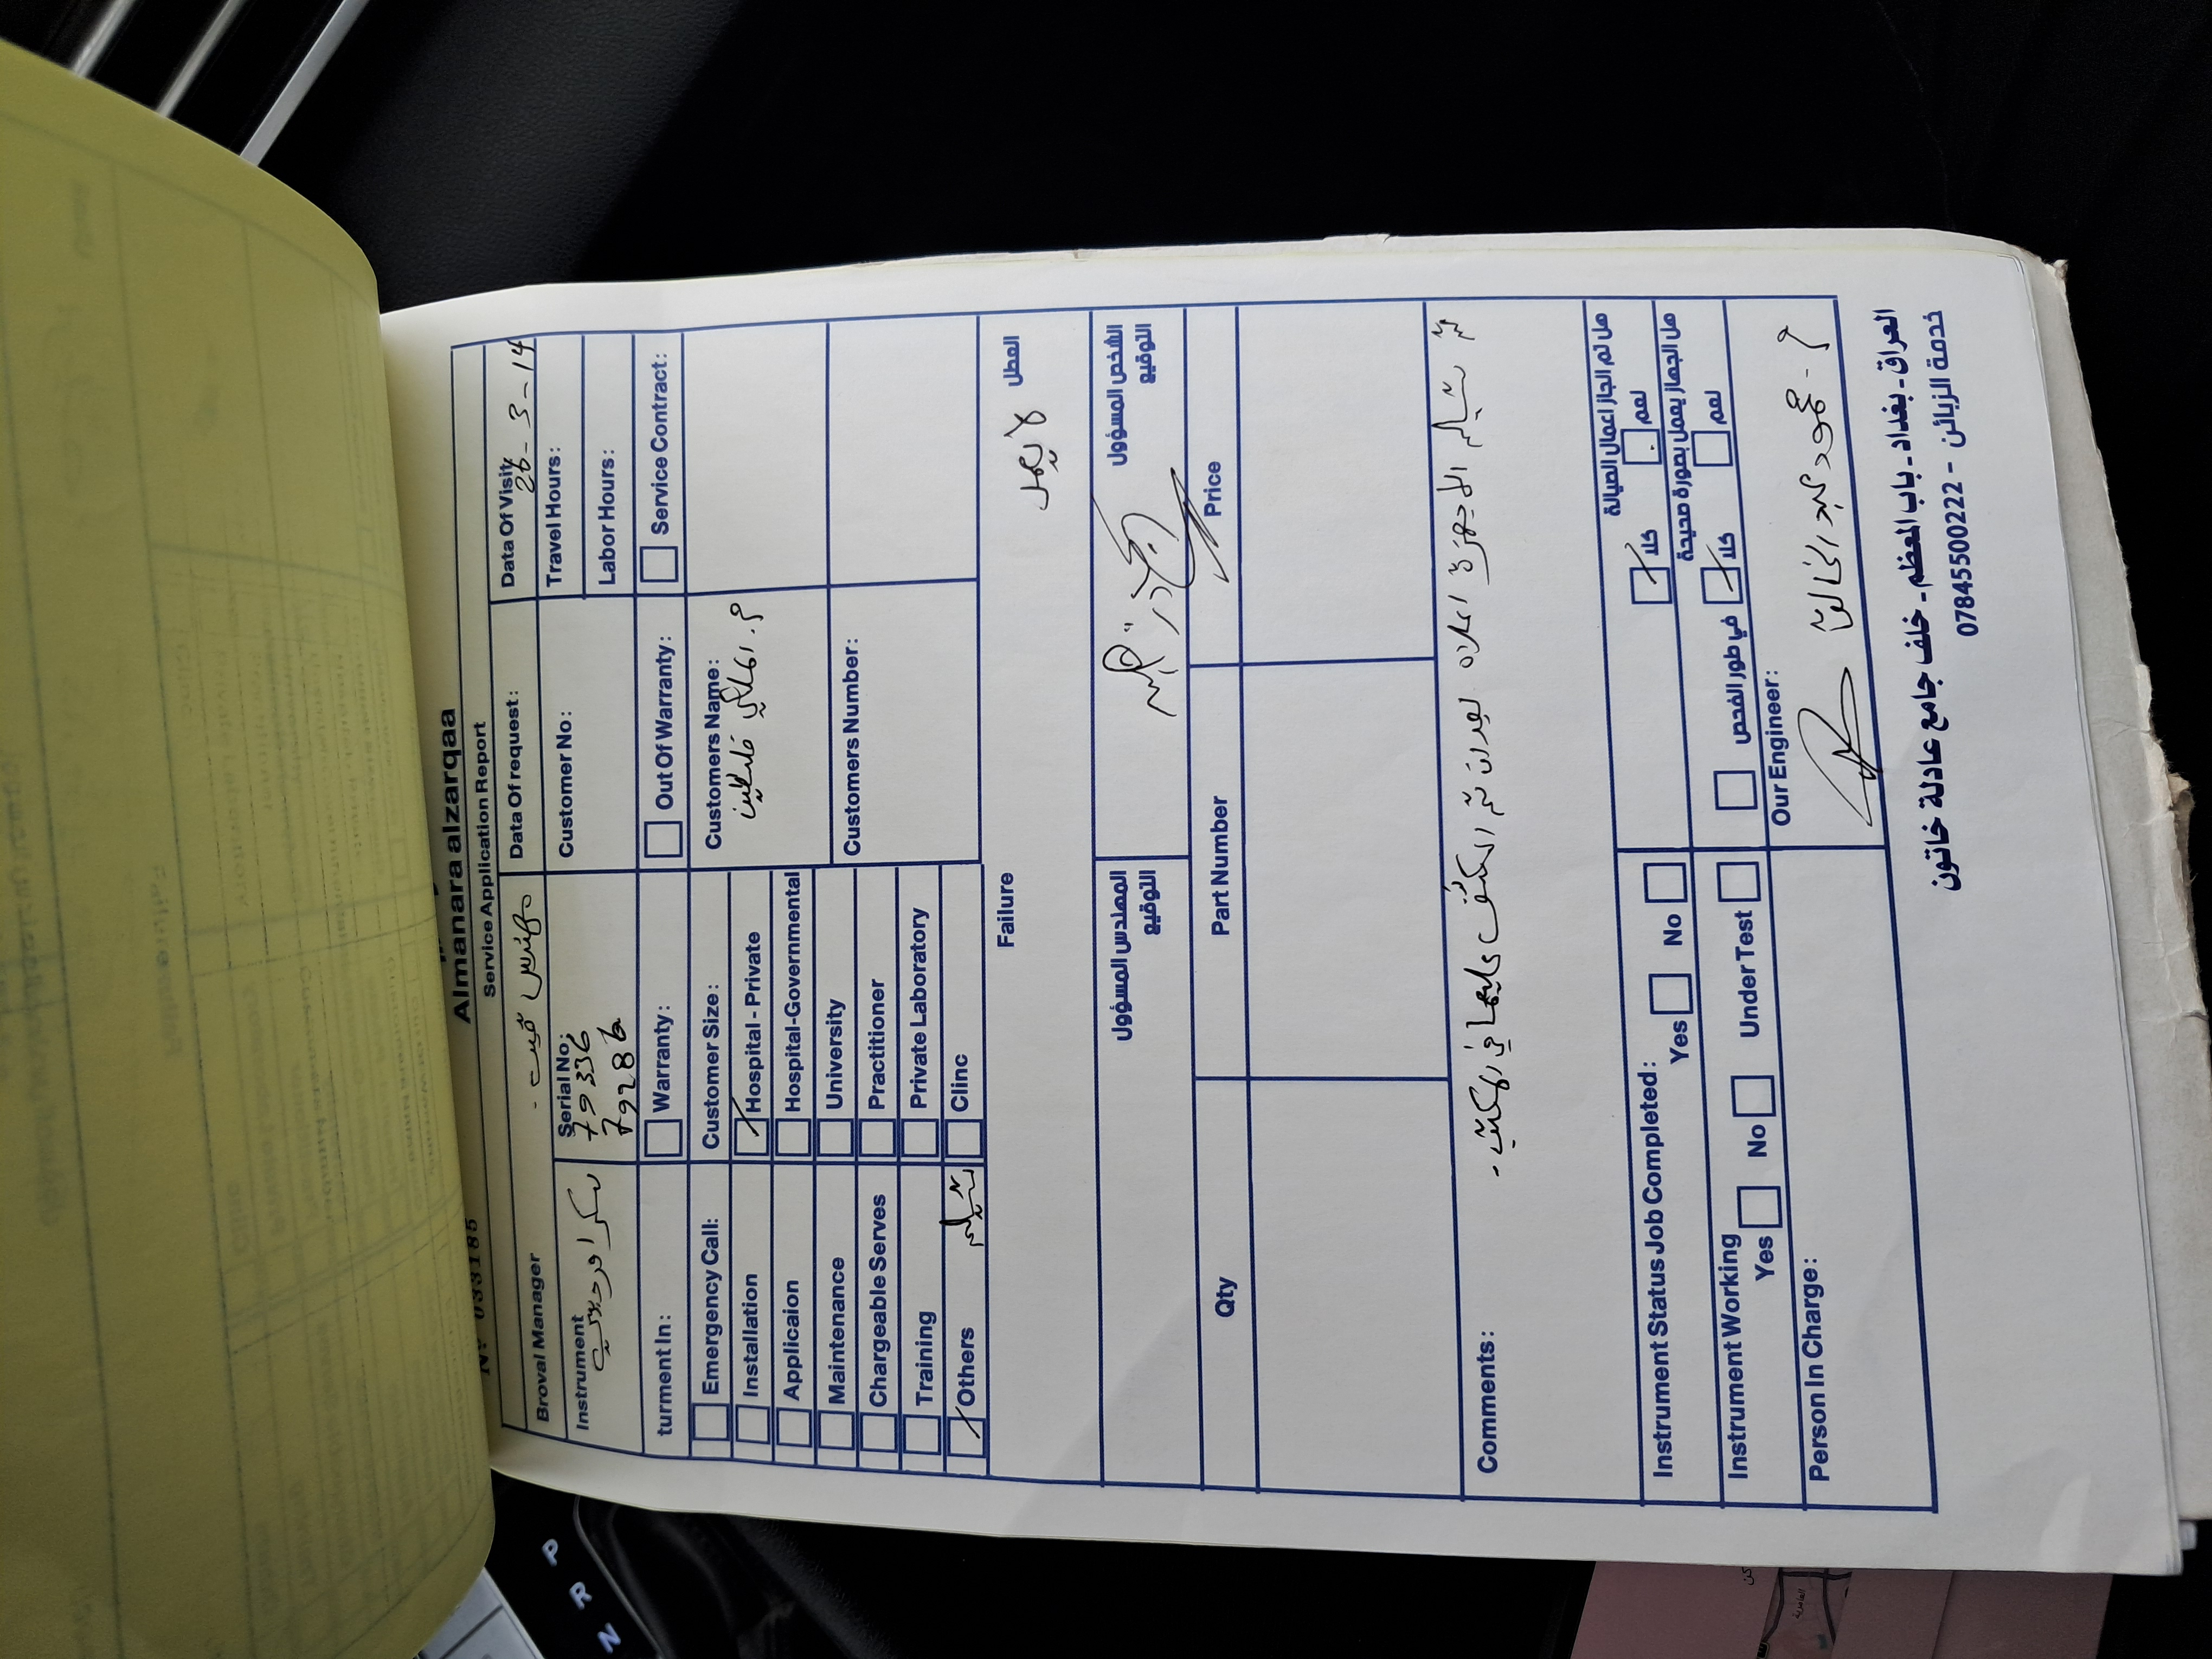 Almanara alzarqaa
Service Application Report
Nº 033185
Broval Manager
Data Of request:
Data Of Visit
26-3-14
Instrument
Serial No:
79336
79286
Customer No:
Travel Hours:
Labor Hours:
turment In:
Warranty:
Out Of Warranty:
Service Contract:
Emergency Call:
Installation
Applicaion
Maintenance
Chargeable Serves
Training
Others
تسليم
Customer Size:
Hospital - Private
Hospital-Governmental
University
Practitioner
Private Laboratory
Clinc
Customers Name:
Customers Number:
Failure
العطل
لا يعمل
المهندس المسؤول
التوقيع
الشخص المسؤول
التوقيع
Qty
Part Number
Price
Comments:
تم تسليم الاجهزة اعلاه بعد ان تم الكشف عليها في المكتب.
Instrument Status Job Completed:
Yes
No
هل تم انجاز اعمال الصيانة
كلا
نعم
Instrument Working
Yes
No
Under Test
هل الجهاز يعمل بصورة صحيحة
في طور الفحص
كلا
نعم
Person In Charge:
Our Engineer:
م. محمود عبد الخالق
العراق - بغداد - باب المعظم - خلف جامع عادلة خاتون
خدمة الزبائن - 07845500222
P
R
N